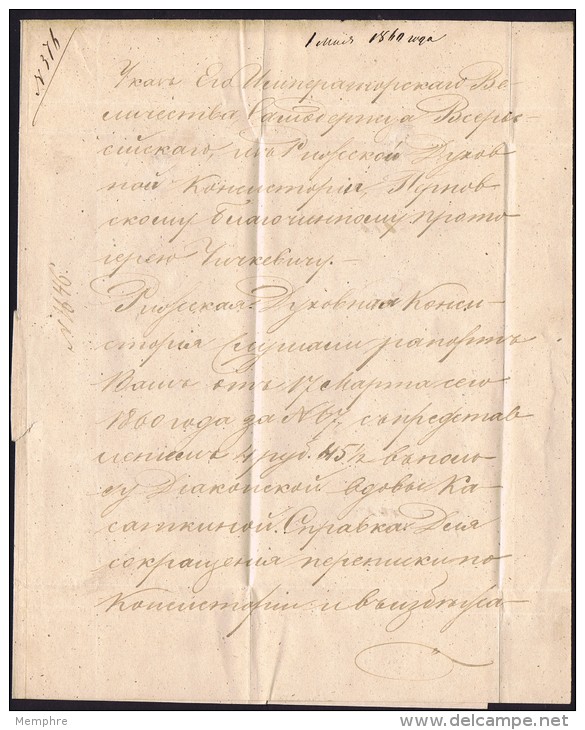 N 376
1 Мая 1860 года
Указъ Его Императорскаго Ве-
личества, Самодержца Всерос-
сійскаго, изъ Рижской Духов
ной Консисторіи, Пернов
скому благочинному прото
іерею Чичкевичу. —
N 1246.
Рижская Духовная Конси-
сторія слушали рапортъ
Вашъ отъ 17 Марта сего
1860 года за N 67, съ представ
леніемъ 4 руб. 45½ въ поль-
зу Діаконской вдовы Ка
саткиной. Справка: Для
сокращенія переписки по
Консисторіи и въ избѣжа-
Memphre
www.delcampe.net